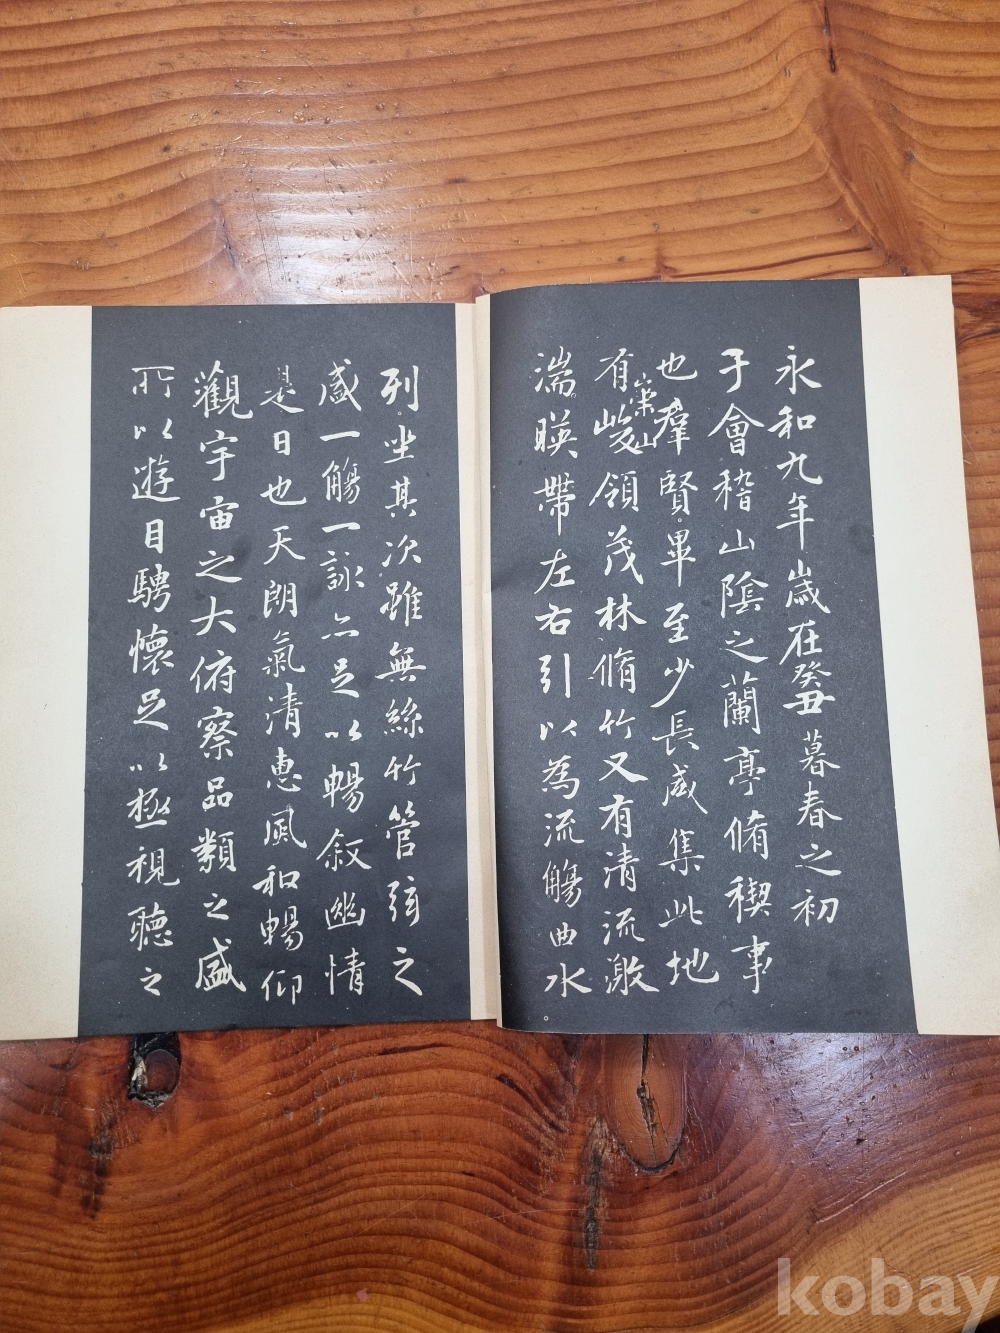 永和九年歲在癸丑暮春之初
于會稽山陰之蘭亭脩稧事
也羣賢畢至少長咸集此地
有崇山峻領茂林脩竹又有清流激
湍暎帶左右引以為流觴曲水
列坐其次雖無絲竹管弦之
盛一觴一詠亦足以暢叙幽情
是日也天朗氣清惠風和暢仰
觀宇宙之大俯察品類之盛
所以遊目騁懷足以極視聽之
kobay